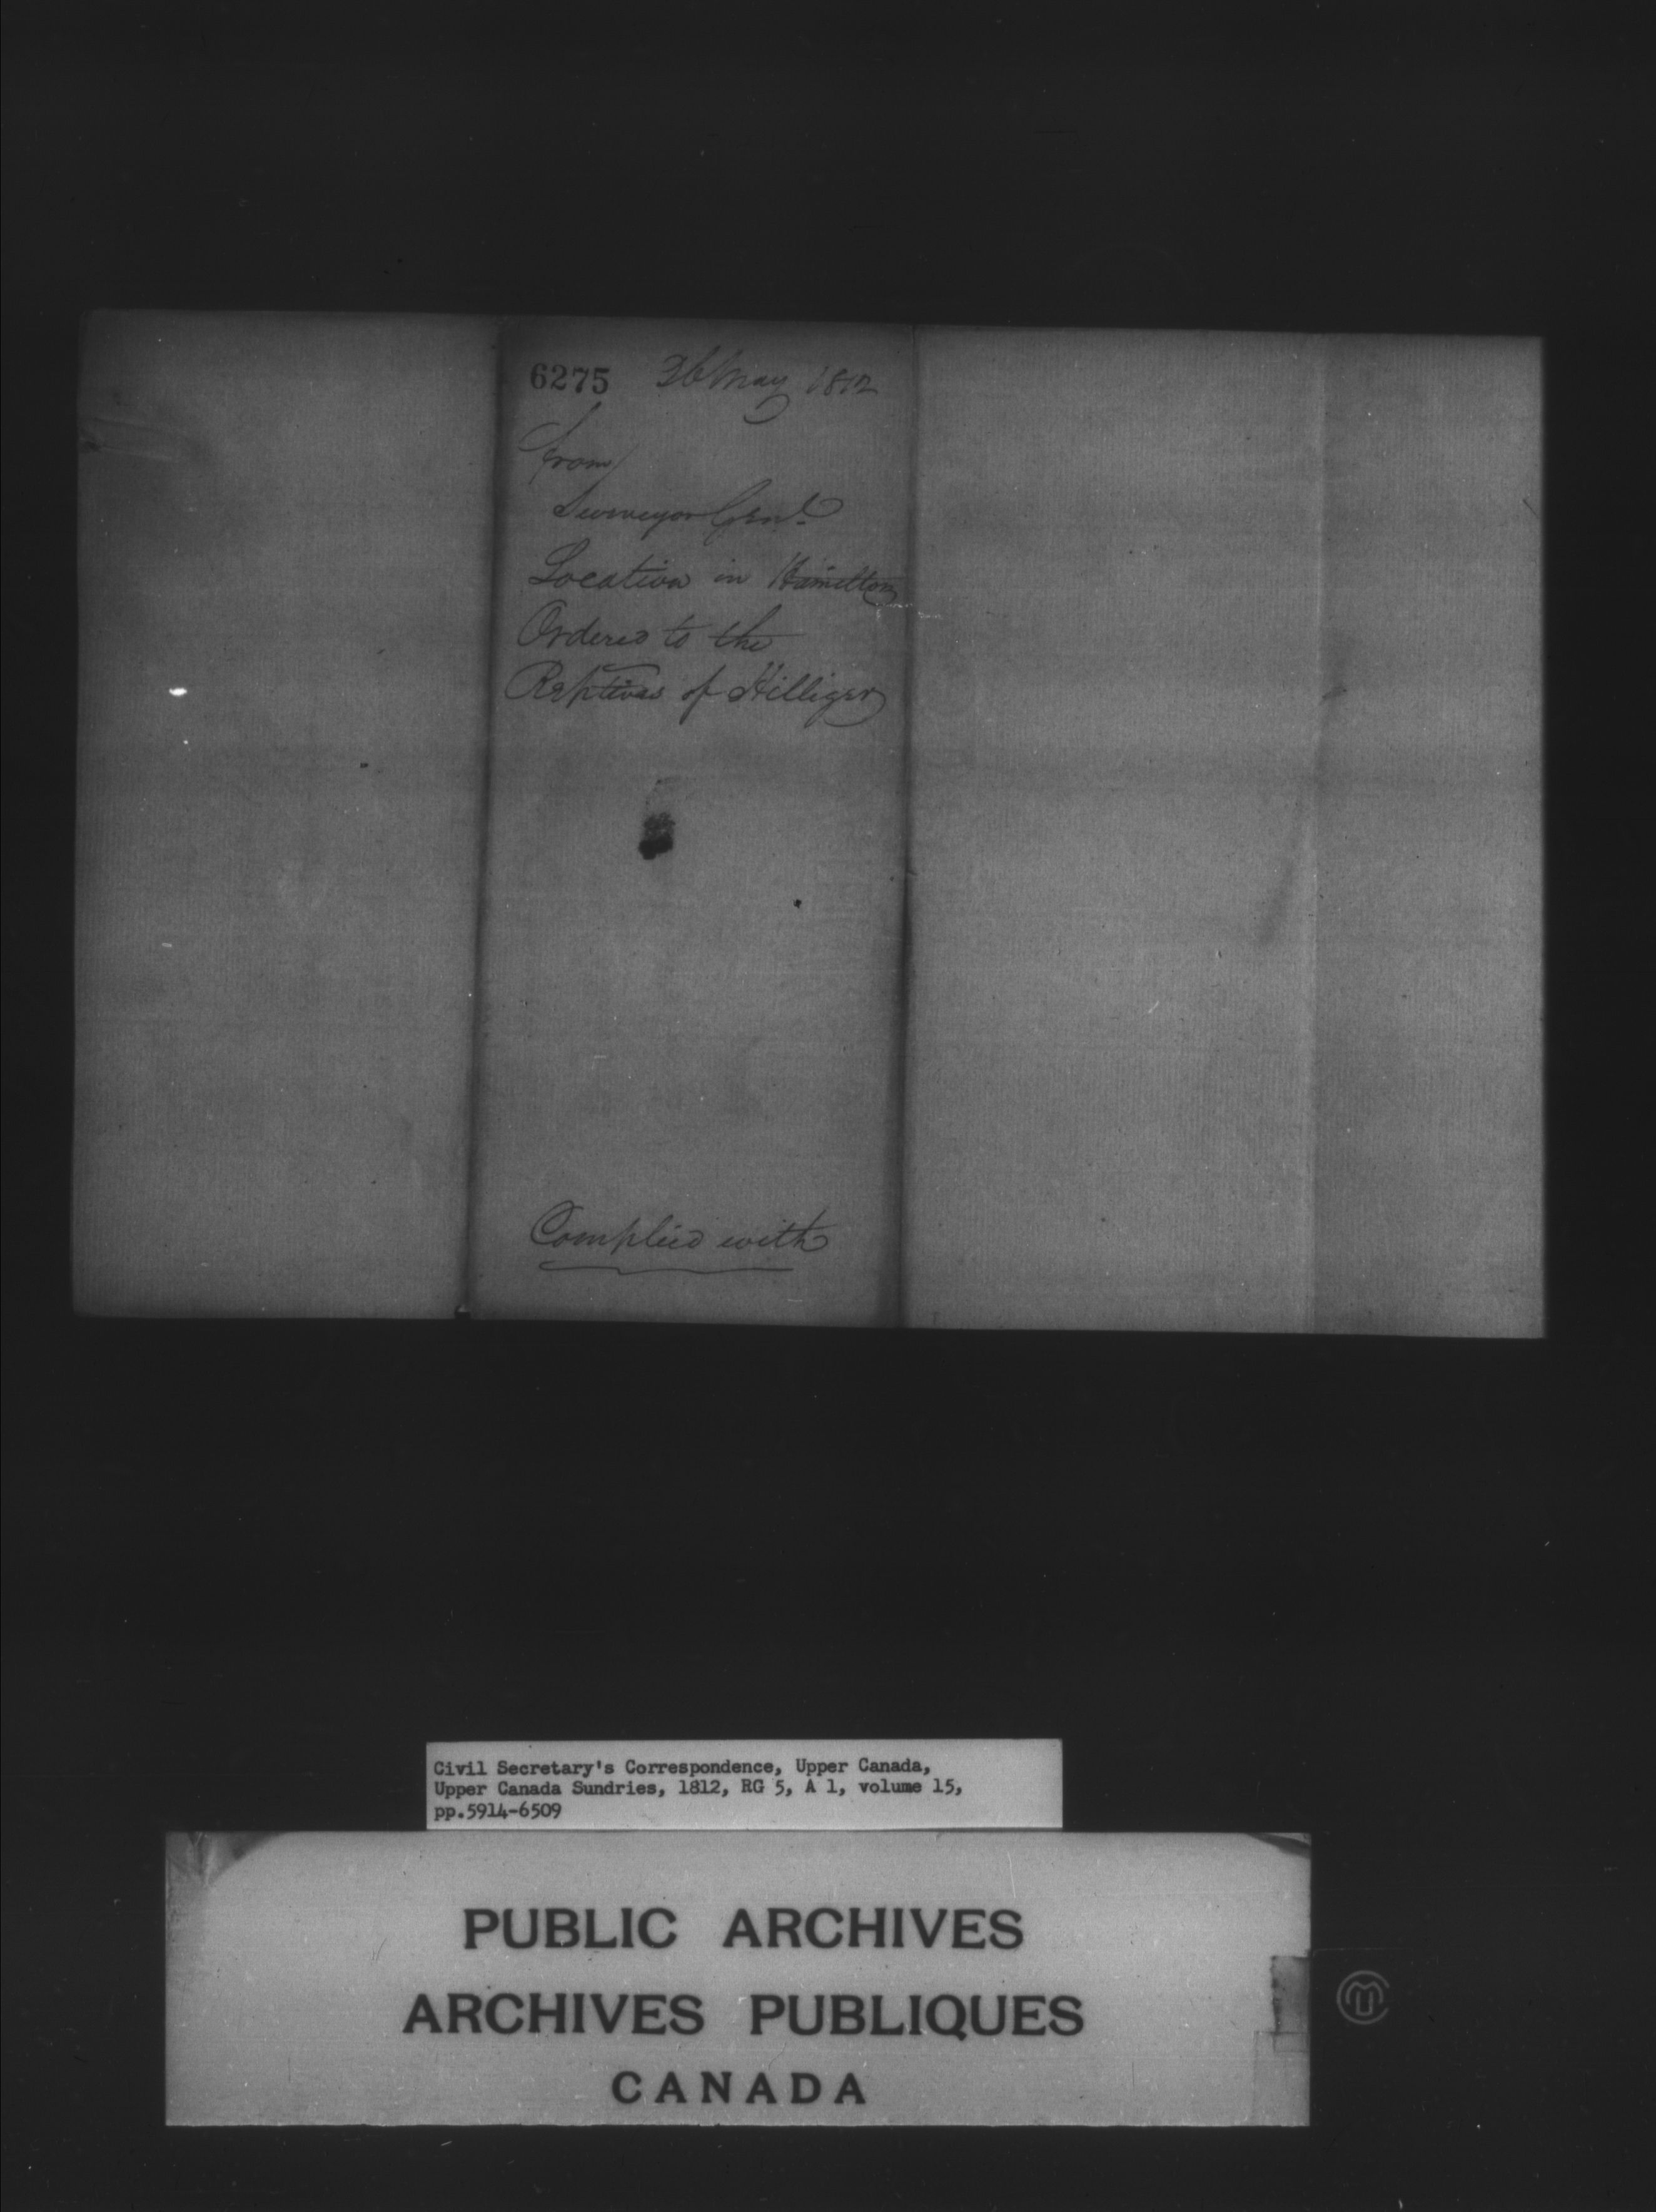 6275 26 May 1812
From
Surveyor Genl.
Location in Hamilton
Ordered to the
Reptives of Hilliger
Complied with
Civil Secretary's Correspondence, Upper Canada,
Upper Canada Sundries, 1812, RG 5, A 1, volume 15,
pp.5914-6509
PUBLIC ARCHIVES
ARCHIVES PUBLIQUES
CANADA